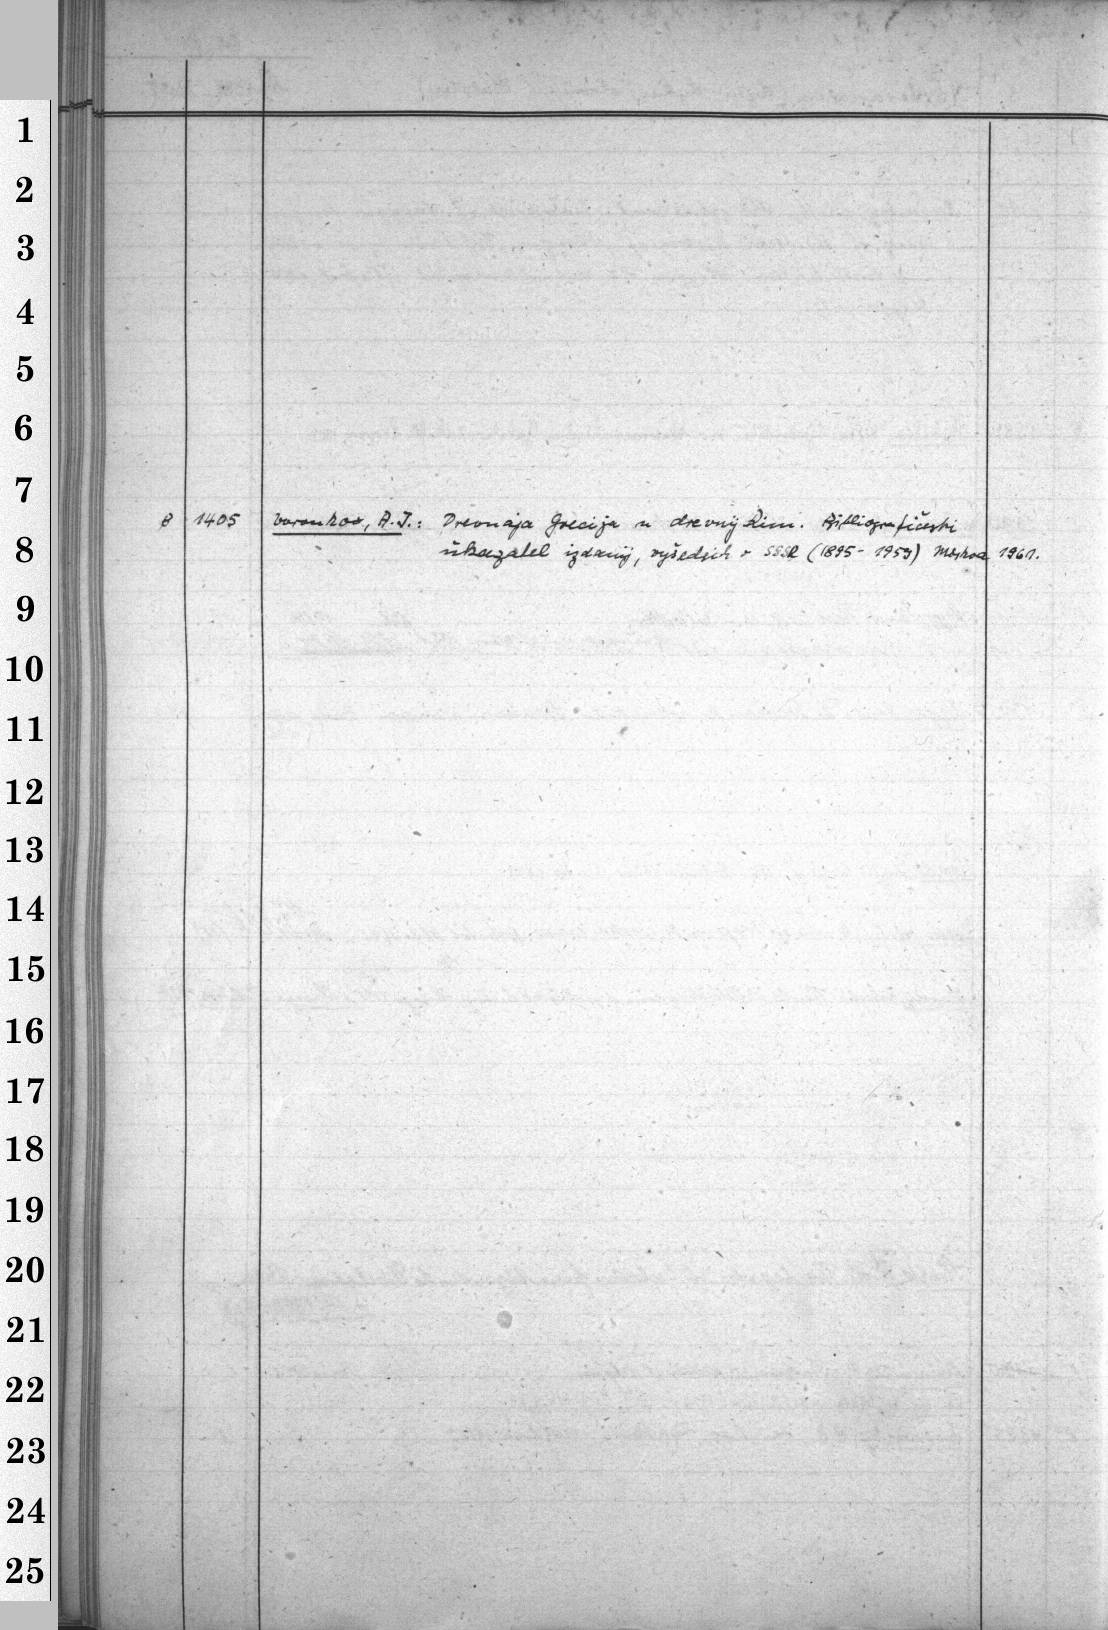 1
2
3
4
5
6
7
B 1405 Voronkov, A.I.: Drevnaja Grecija u drevnij Rim. Bibliografičeski
8
ukazatel izdanij, vyšedsich v SSSR (1895-1959) Moskva 1961.
9
10
11
12
13
14
15
16
17
18
19
20
21
22
23
24
25